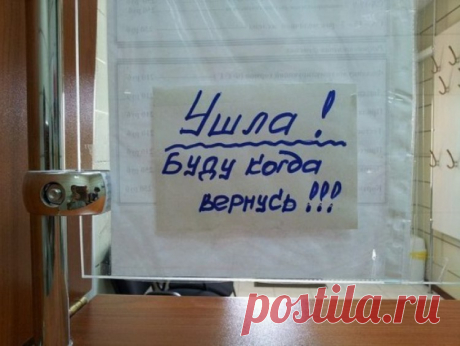 Ушла!
Буду когда
вернусь!!!
postila.ru